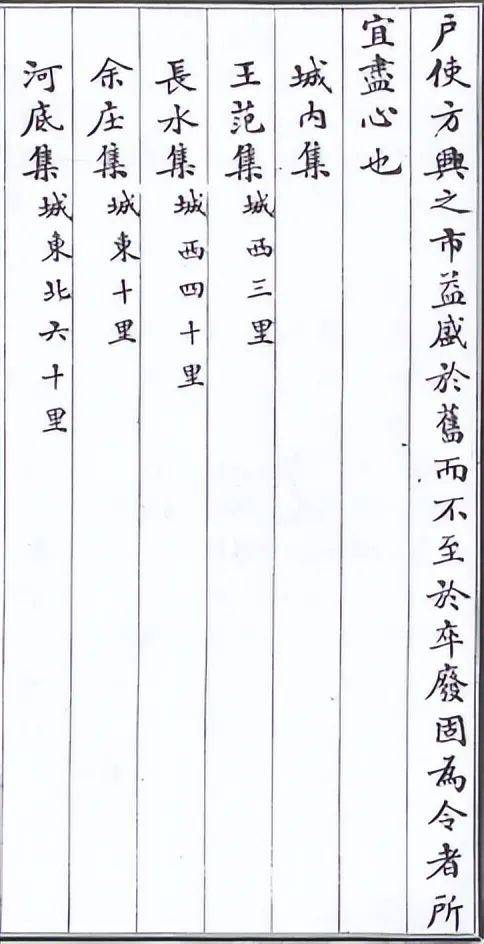 户使方興之市益盛於舊而不至於卒廢固為令者所
宜盡心也
城内集
王范集城西三里
長水集城西四十里
余庄集城東十里
河底集城東北六十里